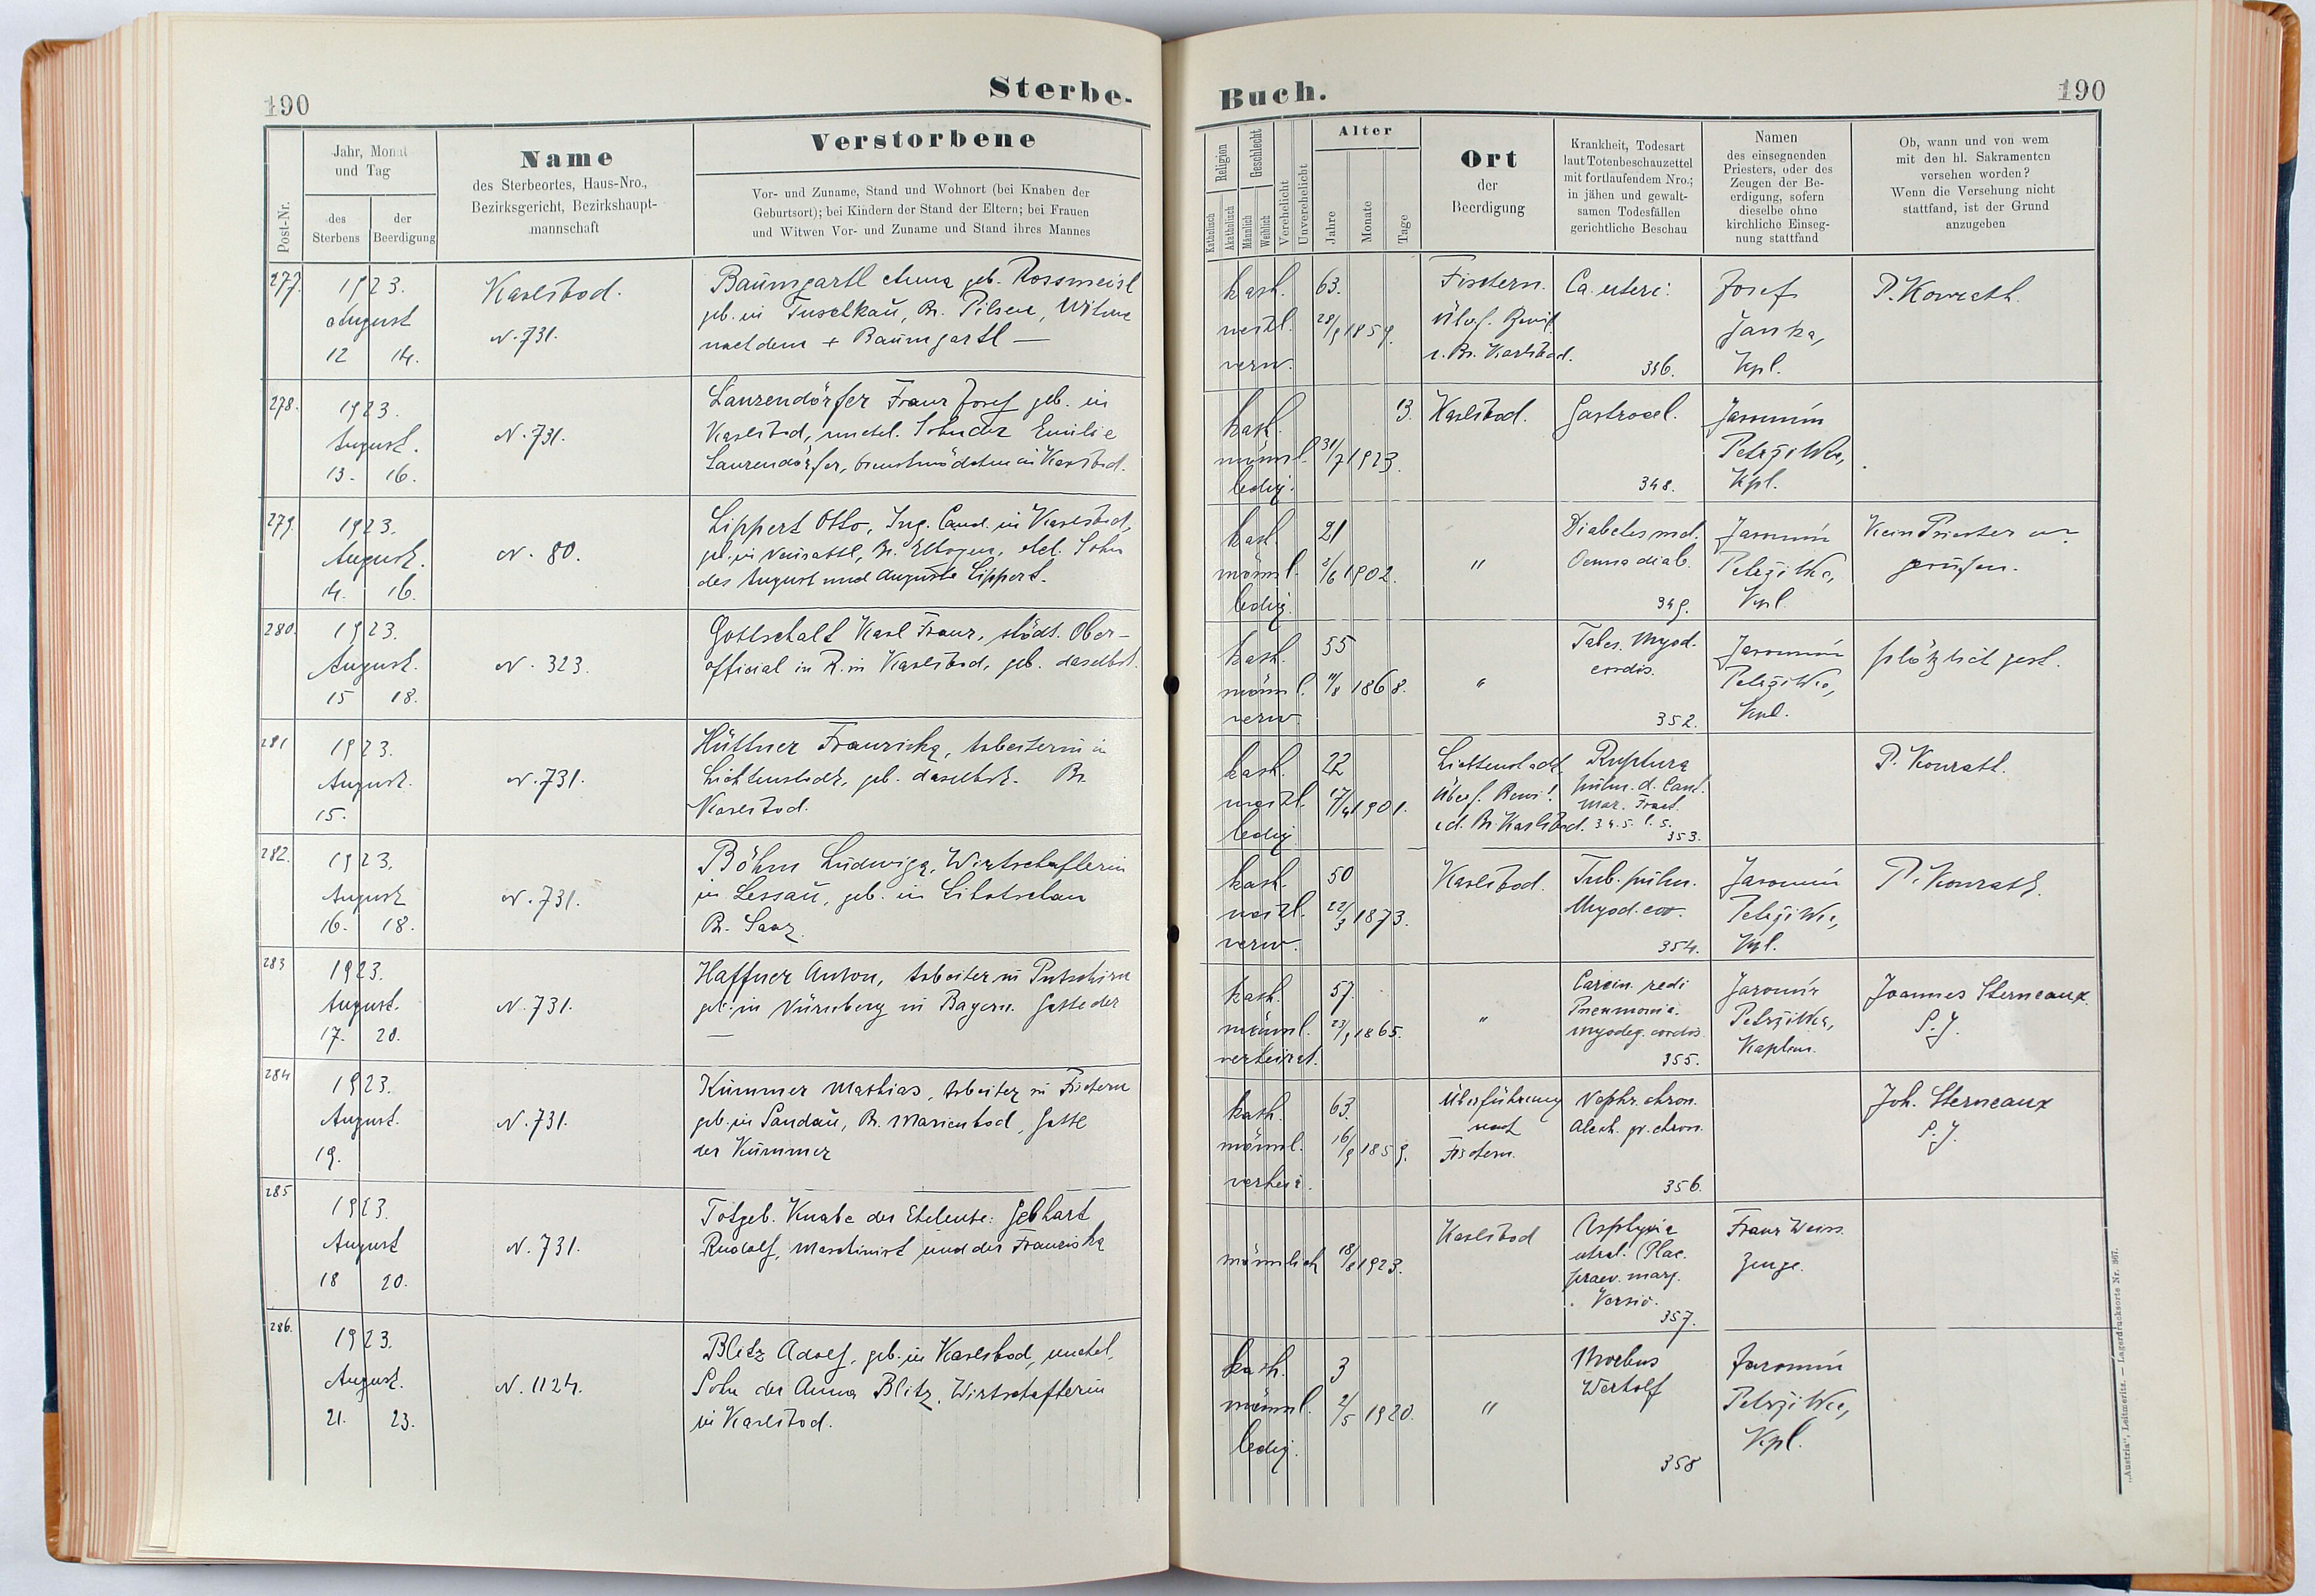 190
Sterbe-
Post-Nr.
Jahr, Monat
und Tag
des
Sterbens
der
Beerdigung
Name
des Sterbeortes, Haus-Nro.,
Bezirksgericht, Bezirkshaupt-
mannschaft
Verstorbene
Vor- und Zuname, Stand und Wohnort (bei Knaben der
Geburtsort); bei Kindern der Stand der Eltern; bei Frauen
und Witwen Vor- und Zuname und Stand ihres Mannes
277.
1923.
August
12 14.
Karlsbad.
N. 731.
Baumgartl Anna geb. Rossmeisl
geb. in Tuschkau, Bz. Pilsen, Witwe
nach dem + Baumgartl —
278.
1923.
August.
13. 16.
N. 731.
Lanzendörfer Franz Josef geb. in
Karlsbad, unehel. Sohn der Emilie
Lanzendörfer, Dienstmädchen in Karlsbad.
279.
1923.
August.
14. 16.
N. 80.
Lippert Otto, Ing. Cand. in Karlsbad,
geb. in Neusattl, Bz. Elbogen, ehel. Sohn
des August und Auguste Lippert.
280.
1923.
August.
15 18.
N. 323.
Gottschalk Karl Franz, städt. Ober-
offizial in R. in Karlsbad, geb. daselbst.
281
1923.
August.
15.
N. 731.
Hüttner Franziska, Arbeiterin in
Lichtenstadt, geb. daselbst. Bz.
Karlsbad.
282.
1923.
August
16. 18.
N. 731.
Böhm Ludwiga, Wirtschafterin
in Lessau, geb. in Libotschan
Bz. Saaz.
283
1923.
August.
17. 20.
N. 731.
Haffner Anton, Arbeiter in Putschirn
geb. in Nürnberg in Bayern. Gatte der
—
284
1923.
August.
19.
N. 731.
Kümmer Mathias, Arbeiter in Fischern
geb. in Sandau, Bz. Marienbad, Gatte
der Kümmer
285
1923.
August
18 20.
N. 731.
Totgeb. Knabe der Eheleute: Gebhart
Rudolf, Maschinist und der Franziska
286.
1923.
August.
21. 23.
N. 1124.
Blitz Adolf, geb. in Karlsbad, unehel.
Sohn der Anna Blitz, Wirtschafterin
in Karlsbad.
Buch.
190
Religion
Katholisch
Akatholisch
Geschlecht
Männlich
Weiblich
Verehelicht
Unverehelicht
Alter
Jahre
Monate
Tage
Ort
der
Beerdigung
Krankheit, Todesart
laut Totenbeschauzettel
mit fortlaufendem Nro.;
in jähen und gewalt-
samen Todesfällen
gerichtliche Beschau
Namen
des einsegnenden
Priesters, oder des
Zeugen der Be-
erdigung, sofern
dieselbe ohne
kirchliche Einseg-
nung stattfand
Ob, wann und von wem
mit den hl. Sakramenten
versehen worden?
Wenn die Versehung nicht
stattfand, ist der Grund
anzugeben
kath.
weibl.
verw.
63.
28/9 1859.
Fischern.
Überf. Bewil.
d. Bz. Karlsbad.
Ca. uteri.
346.
Josef
Janka,
Kpl.
P. Konrath.
kath.
männl.
ledig.
13.
31/7 1923.
Karlsbad.
348.
Jaromír
Petržilka,
Kpl.
kath.
männl.
ledig.
21
2/6 1902.
"
Diabetes mel.
Coma diab.
349.
Jaromír
Petržilka,
Kpl.
Kein Priester
gerufen.
kath.
männl.
verw.
55
11/8 1868.
"
Tabes. Myod.
cordis.
352.
Jaromír
Petržilka,
Kpl.
plötzlich gest.
kath.
weibl.
ledig
22
17/4 1901.
Lichtenstadt,
Überf. Bewil.
d. Bz. Karlsbad.
Ruptura
pulm. d.
353.
P. Konrath.
kath.
weibl.
verw.
50
22/3 1873.
Karlsbad.
Tub. pulm.
Myod. cor.
354.
Jaromír
Petržilka,
Kpl.
P. Konrath.
kath.
männl.
verheirat.
57.
1865.
"
Carcin. recti
Pneumonia.
Myodeg. cordis
355.
Jaromír
Petržilka,
Kaplan.
Joannes Sterneaux
S. J.
kath.
männl.
verheir.
63.
16/9 1859.
Überführung
nach
Fischern.
Nephr. chron.
356.
Joh. Sterneaux
S. J.
männlich
18/8 1923.
Karlsbad
Asphyxia
(Plac.
praev. marg.
Versio.
357.
Franz Weiss.
Zeuge.
kath.
männl.
ledig.
3
2/5 1920.
"
Morbus
Werlhof
358
Jaromír
Petržilka,
Kpl.
„Austria“, Leitmeritz. — Lagerdrucksorte Nr. 367.